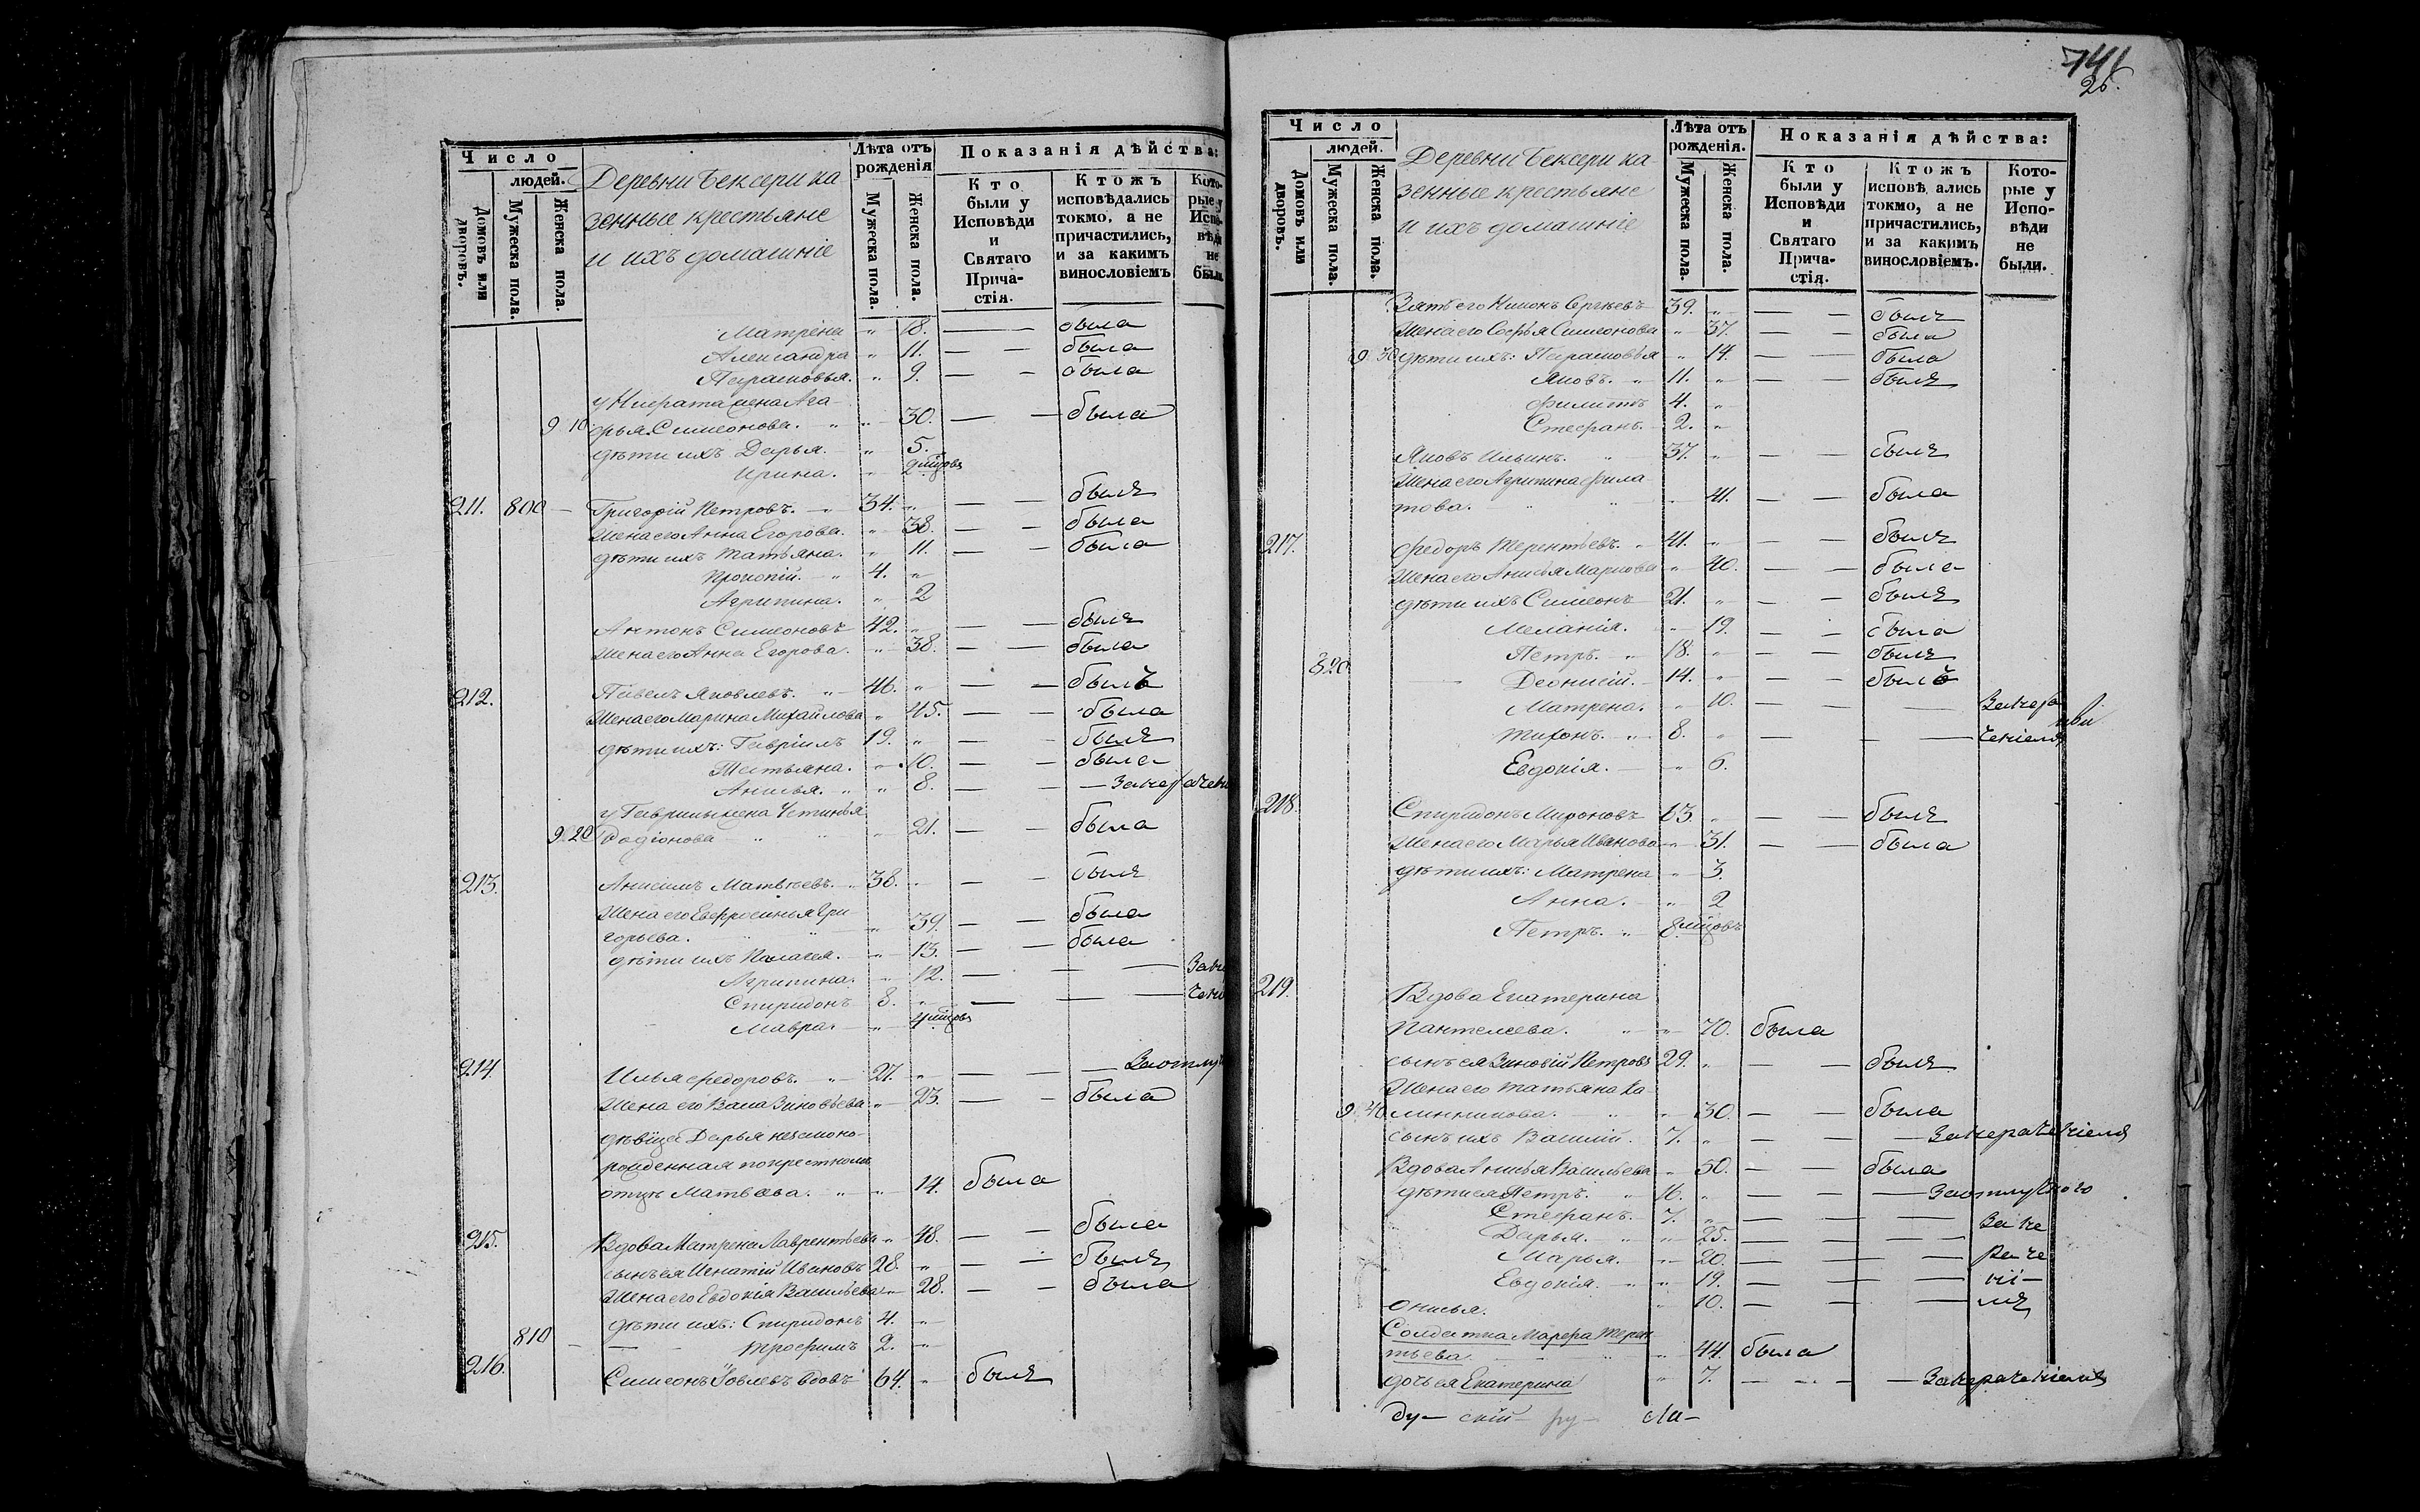 Число
людей.
Домовъ или дворовъ.
Мужеска пола.
Женска пола.
Деревни Бексери ка
зенные крестьяне
и ихъ домашніе
Лѣта отъ рожденія
Мужеска пола.
Женска пола.
Показанія дѣйства:
Кто были у Исповѣди и Святаго Прича-стія.
Ктожъ исповѣдались токмо, а не причастились, и за какимъ винословіемъ
Кото-рые у Испо-вѣди не были.
Матрена " 18. — — была
Александра " 11. — — была
Парасковья. " 9. — — была
у Никрата жена Ага-
910 фья Симеонова. " " 30. — — была
дѣти ихъ Дарья. " 5.
Ирина. " 2 мѣцовъ
211. 800 — Григорій Петровъ. — 34. " — — былъ
Жена его Анна Егорова. " 38. — — была
дѣти ихъ Татьяна. " 11. — — была
Прокопій. — " 4. "
Агрипина. " 2
Антонъ Симеоновъ 42. " — — былъ
Жена его Анна Егорова. " 38. — — была
212. Павелъ Яковлевъ. " 46. " — — былъ
Жена его Марина Михайлова " 45. — — была
дѣти ихъ: Гавріилъ 19. " — — былъ
Татьяна. " 10. — — была
Анисья. " " 8. — — — Закра
у Гаврилы жена Устинья
920 Родіонова " " 21. — — была
213. Анисимъ Матвѣевъ. " 38. " — — былъ
Жена его Евфросинья Гри-
горьева. " 39. — — была
дѣти ихъ Пелагея. " 13. — — была
Агрипина. " 12. — — —
Спиридонъ 8. " — — —
Мавра. " 4 мѣцовъ
214. Илья Федоровъ. " 27. " — — — Заотлу
Жена его Васа Зиновьева " 23. — — была
дѣвица Дарья незаконо-
рожденная по крестному
отцу Матвѣева. " " 14. была
215. Вдова Матрена Лаврентьева " 48. — — была
сынъ ея Игнатій Ивановъ 28. " — — былъ
Жена его Евдокія Васильева " 28. — — была
дѣти ихъ: Спиридонъ 4. "
810 — Трофимъ 2. "
216. Симеонъ Іовлевъ вдовъ 64. " былъ
741
26.
Число
людей.
Домовъ или дворовъ.
Мужеска пола.
Женска пола.
Деревни Бексери ка-
зенные крестьяне
и ихъ домашніе
Лѣта отъ рожденія.
Мужеска пола.
Женска пола.
Показанія дѣйства:
Кто были у Исповѣди и Святаго Прича-стія.
Ктожъ исповѣдались токмо, а не причастились, и за какимъ винословіемъ.
Кото-рые у Испо-вѣди не были.
Зять его Никонъ Сергѣевъ 39. " — — былъ
Жена его Софья Симеонова " 37. — — была
930 дѣти ихъ: Парасковья " 14. — — была
Яковъ. " 11. " — — былъ
Филиппъ 4. "
Стефанъ. 2. "
Яковъ Ильинъ. " 37. " — — былъ
Жена его Агрипина Фила
това. " " 41. — — была
217. Федоръ Терентьевъ. " 41. " — — былъ
Жена его Анисья Маркова " 40. — — была
дѣти ихъ Симеонъ 21. " — — былъ
Меланія. " 19. — — была
Петръ. " 18. " — — былъ
820 Деонисій. — 14. " — — былъ
Матрена. " 10. — — —
Тихонъ. " 8. " — — —
Евдокія. — " 6.
218. Спиридонъ Мироновъ 63. " — — былъ
Жена его Марья Иванова " 31. — — была
дѣти ихъ: Матрена " 3.
Анна. " 2
Петръ. " 8 мѣцовъ
219. Вдова Екатерина
Пантелеева. " " 70. была
сынъ ея Зиновій Петровъ 29. " — — былъ
Жена его Татьяна Ка-
940 линникова. " " 30. — — была
сынъ ихъ Василій. 7. " — — — Занераченіемъ
Вдова Анисья Васильева " 50. — — была
дѣти ея Петръ. " 16. " — — — Заотлучкою
Стефанъ. 7. " — — — За не
Дарья. " " 25. — — —
Марья. " 20. — — — раче
Евдокія. " " 19. — — — ніе—
Онисья. " 10. — — — мъ
Солдатка Марфа Терен
тьева. " " 44. была
дочь ея Екатерина " 7. — — — Занераченіемъ
ду— скій— ру—